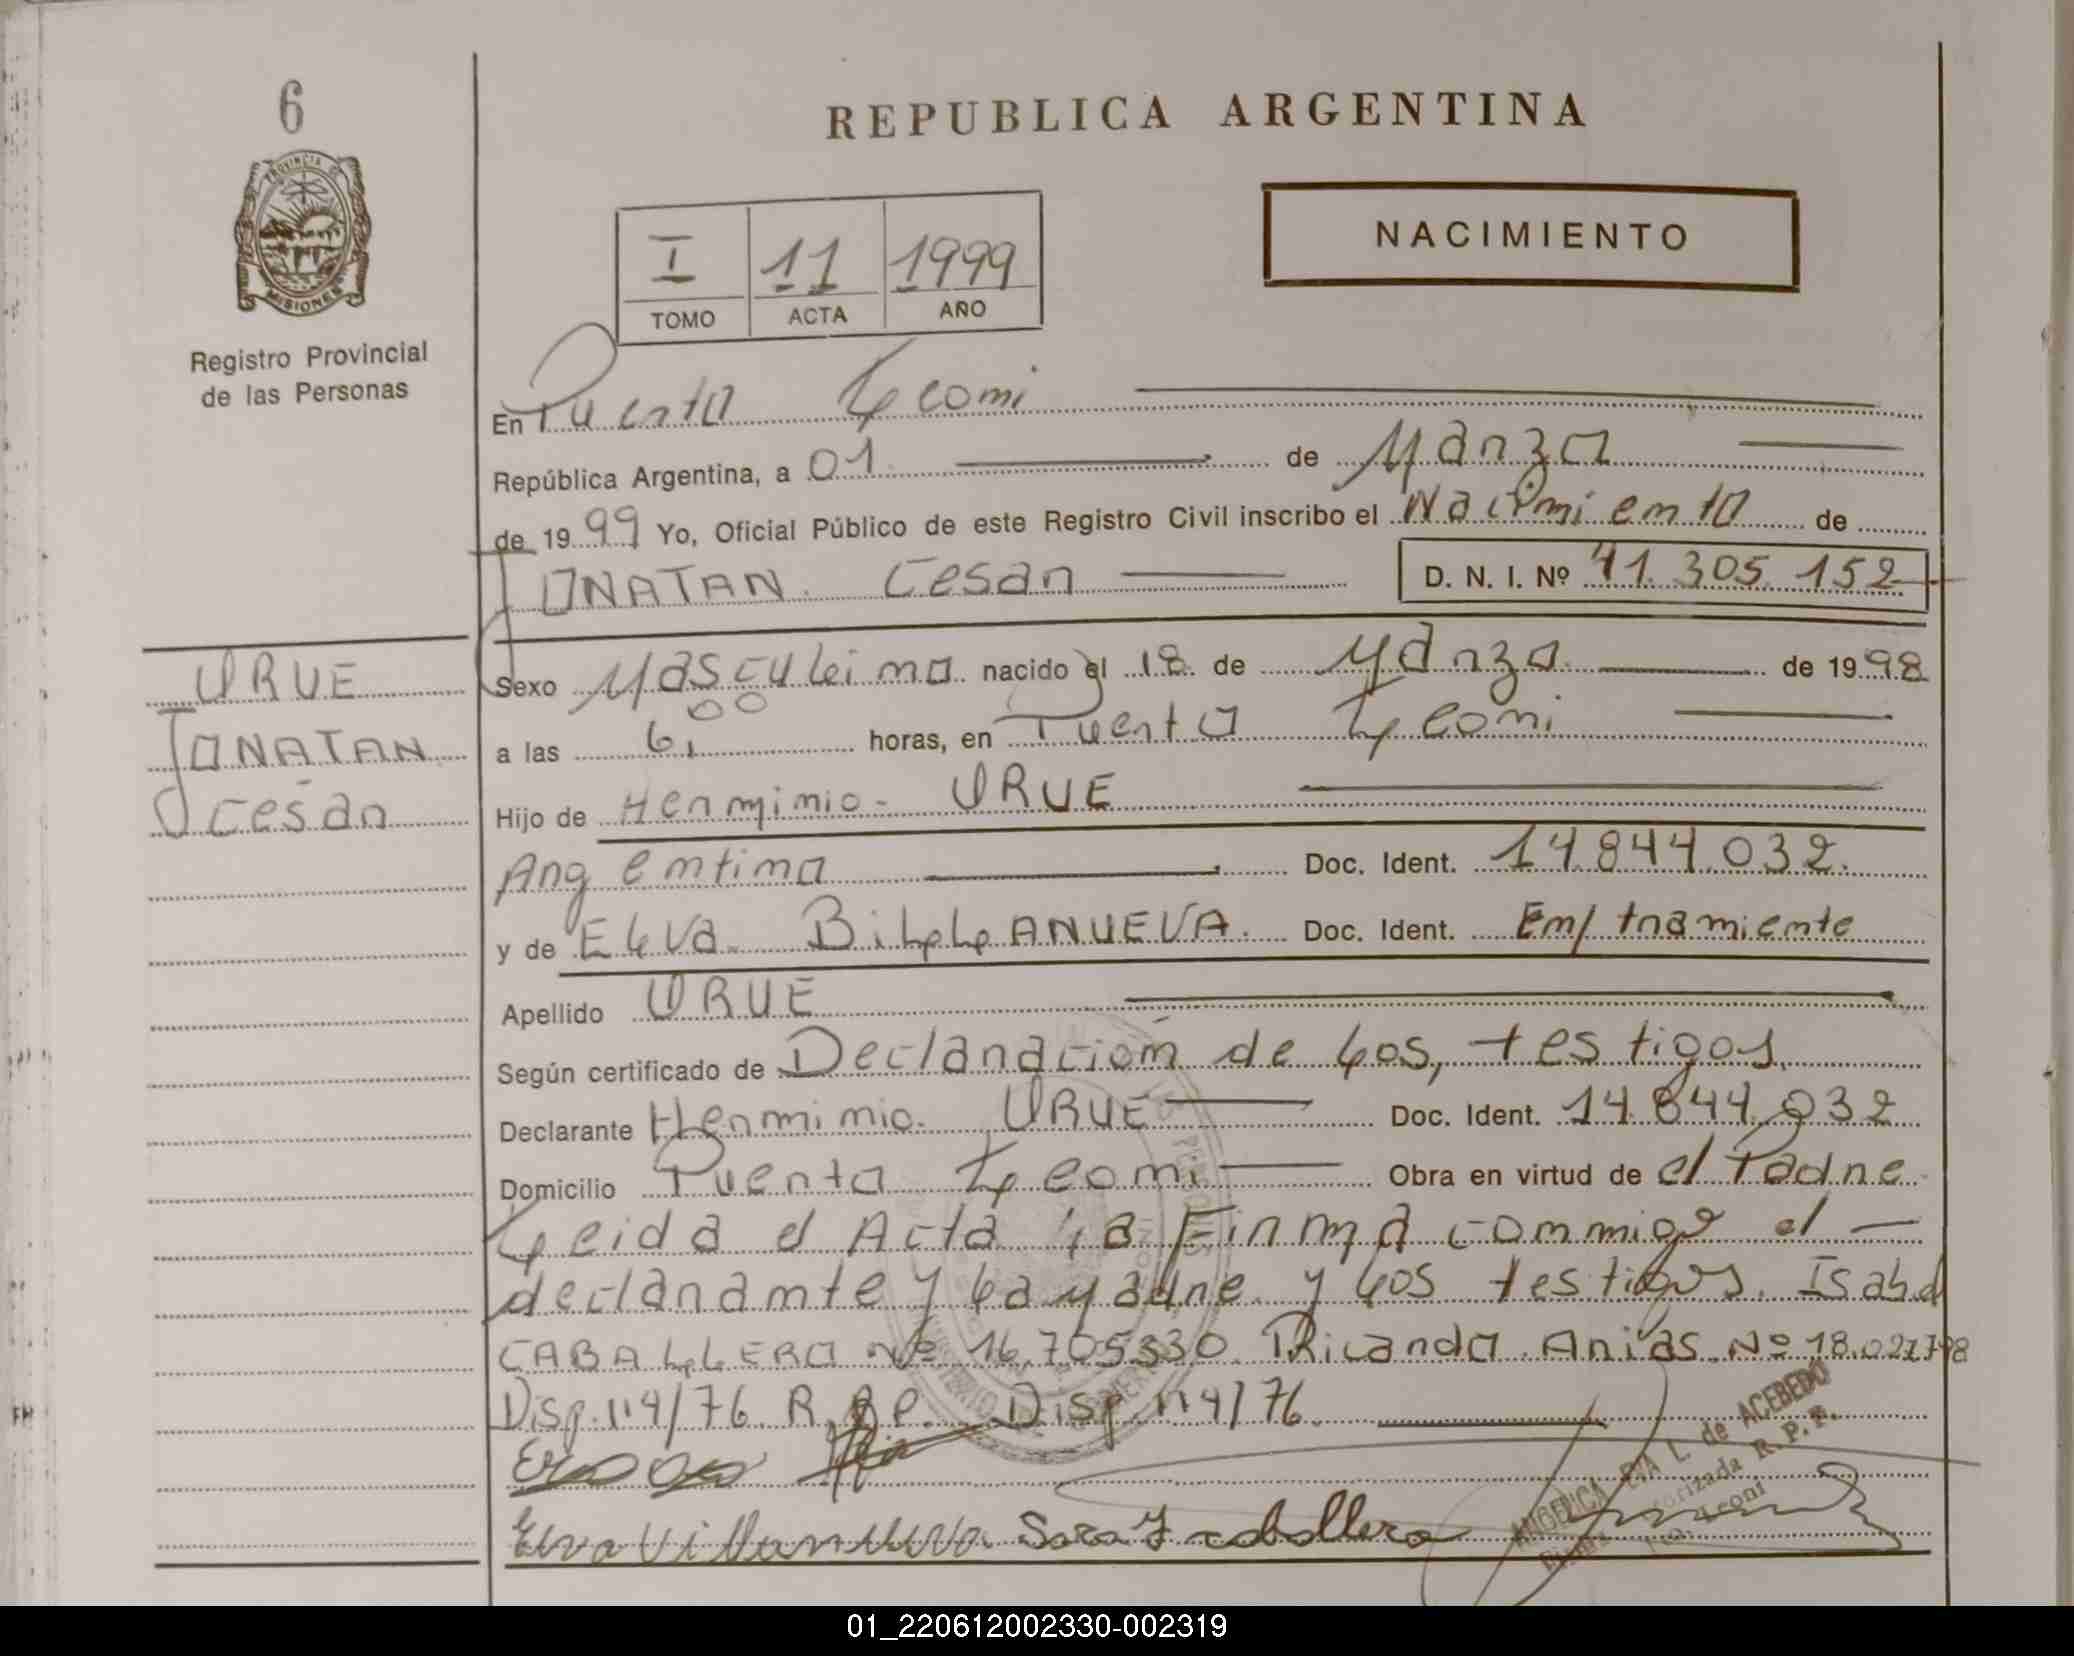 6
REPUBLICA ARGENTINA
PROVINCIA DE
MISIONES
Registro Provincial
de las Personas
NACIMIENTO
I 11 1999
TOMO ACTA AÑO
En Puerto Leoni
República Argentina, a 01 de Marzo
de 1999 Yo, Oficial Público de este Registro Civil inscribo el Nacimiento de
JONATAN Cesar D. N. I. Nº 41.305.152
URUE
JONATAN
Cesar
Sexo Masculino nacido el 18 de Marzo de 1998
a las 6,00 horas, en Puerto Leoni
Hijo de Herminio URUE
Argentino Doc. Ident. 14.844.032.
y de Elva BiLLANUEVA. Doc. Ident. En/ tramiente
Apellido URUE
Según certificado de Declaración de los, testigos,
Declarante Herminio URUE Doc. Ident. 14.844.032
Domicilio Puerto Leoni Obra en virtud de el Padre
Leida el Acta la Firma conmigo el
declarante y la Madre y los testigos. Isabel
CABALLERO Nº 16.705330 Ricardo Arias Nº 18.021798
Disp.114/76 R.P.P. Disp 114/76.
Elva Villanueva Sara I caballero
ANGELICA EVA L. de ACEBEDO
R. P. P.
Leoni
01_220612002330-002319